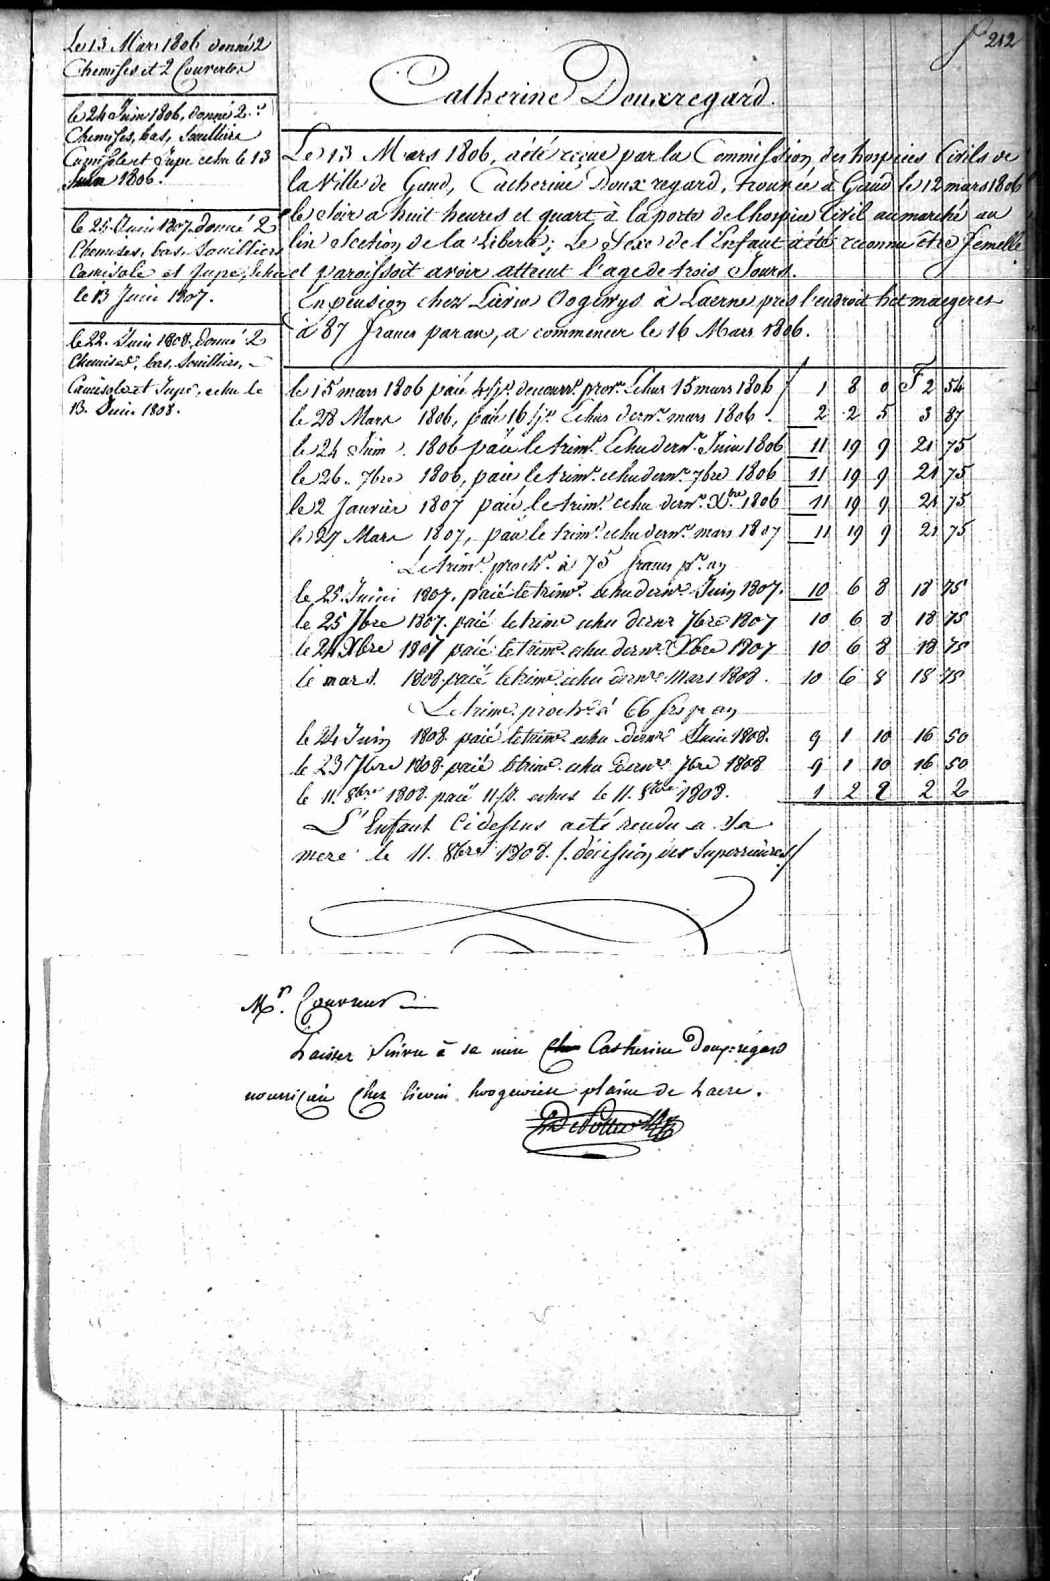 f 212
Le 13 Mars 1806 donné 2
Chemises et 2 Couvertes
le 24 Juin 1806, donné 2
Chemises, bas, Souilliers
Camisole et Jupe echu le 13
Juin 1806.
le 25 Juin 1807 donné 2
Chemises, bas, Souilliers
Camisole et Jupe, Echu
le 13 Juin 1807.
le 22 Juin 1808, donné 2
Chemises, bas, Souilliers,
Camisole et Jupe, echu le
13 Juin 1808.
Catherine Douxregard.
Le 13 Mars 1806, a été reçue par la Commission des hospices Civils de
la Ville de Gand, Catherine Doux regard, trouvée à Gand le 12 mars 1806
le Soir a huit heures et quart à la porte de l'hospice Civil au marché au
lin Section de la Liberté; Le Sexe de l'Enfant a été reconnu être femelle
et paroissoit avoir atteint l'age de trois Jours.
En pension chez Livin Oogewys à Laerne près l'endroit het maegeret
à 87 francs par an, a commencer le 16 Mars 1806.
le 15 mars 1806 paié Echus 15 mars 1806 1 8 0 F 2 54
le 28 Mars 1806, paié 16 Echus dern.r mars 1806. 2 2 5 3 87
le 24 Juin 1806 paié le trim.e Echu dern.r Juin 1806 11 19 9 21 75
le 26 7bre 1806, paié le trim.e echu dern.r 7bre 1806 11 19 9 21 75
le 2 Janvier 1807 paié le trim.e echu dern.r Xbre 1806 11 19 9 21 75
le 27 Mars 1807, paié le trim.e echu dern.r mars 1807 11 19 9 21 75
Le trim.e proch.n à 75 francs p.r an
le 25 Juin 1807, paié le trim.e echu dern.r Juin 1807. 10 6 8 18 75
le 25 7bre 1807. paié le trim.e echu dern.r 7bre 1807 10 6 8 18 75
le 24 Xbre 1807 paié le trim.e echu dern.r Xbre 1807 10 6 8 18 75
le mars 1808 paié le trim.e echu dern.r Mars 1808. 10 6 8 18 75
Le trim.e proch.n à 66 frs pr an
le 24 Juin 1808 paié le trim.e echu dern.r Juin 1808. 9 1 10 16 50
le 23 7bre 1808 paié le trim.e echu dern.r 7bre 1808 9 1 10 16 50
le 11. 8bre 1808. paié 11 echus le 11. 8bre 1808. 1 2 2 2 2
L'Enfant Cidessus a été rendu a Sa
mere le 11. 8bre 1808. /. décision des Superieures /
Mr. Couvreur
Laisser Suivre à sa mere Catherine Doux-régard
nourriçée chez livin hoogewien plaine de Laere.